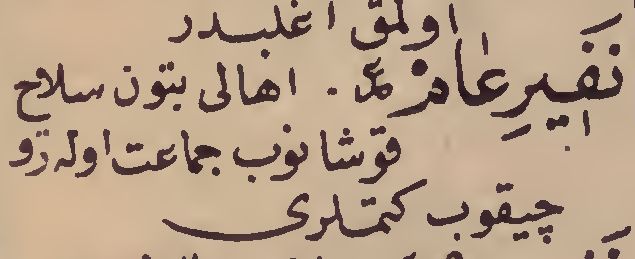 اولمق اغلبدر
نَفِيرِ عام عر. اهالى بتون سلاح
قوشانوب جماعت اوله رق
چيقوب كتمتلرى